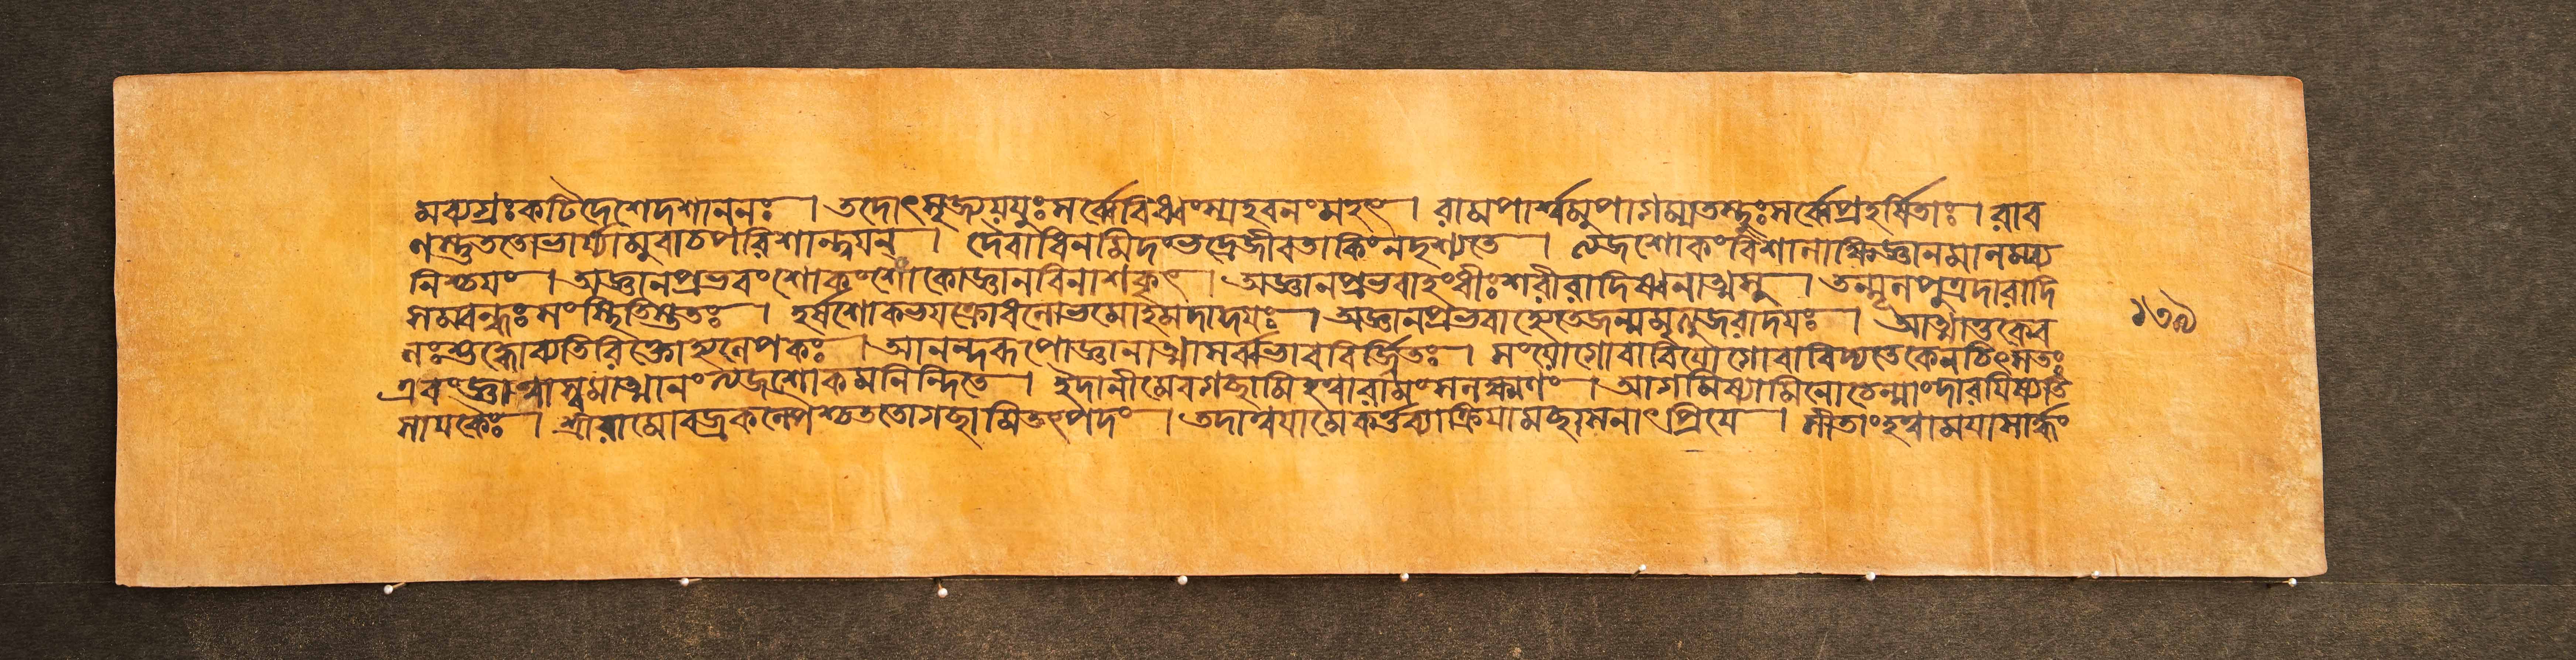 মব্যগ্রঃ কটিদেশে দশাননঃ । তদোৎসৃজ্য যযুঃ সর্ব্বে বিধ্বংস্য হবনং মহৎ । রামপার্শ্বমুপাগম্য তস্থুঃ সর্ব্বে প্রহর্ষিতাঃ । রাব
ণস্তু ততো ভার্য্যামুবাচ পরিশান্ত্বয়ন্ । দৈবাধিনমিদং ভদ্রে জীবতা কিং ন দৃশ্যতে । ত্যজ শোকং বিশালাক্ষি জ্ঞানমালম্ব্য
নিশ্চয়ং । অজ্ঞানপ্রভবং শোকং শোকো জ্ঞানবিনাশকৃৎ । অজ্ঞানপ্রভবাহংধীঃ শরীরাদিষ্বনাত্মসু । তন্মূল পুত্রদারাদি
সম্বন্ধঃ সংসৃতিস্ততঃ । হর্ষশোকভয়ক্রোধলোভমোহমদাদয়ঃ । অজ্ঞানপ্রভবাহ্যেতে জন্মমৃত্যুজরাদয়ঃ । আত্মা তু কেব
লঃ শুদ্ধো ব্যতিরিক্তোহ্যলেপকঃ । আনন্দরূপো জ্ঞানাত্মা সর্ব্বভাববিবর্জ্জিতঃ । সংযোগো বা বিয়োগো বা বিদ্যতে কেনচিৎ সতঃ
এবং জ্ঞাত্বা স্বমাত্মানং ত্যজ শোকমনিন্দিতে । ইদানীমেব গচ্ছামি হত্বা রামং সলক্ষ্মণং । আগমিষ্যামি নো চেন্মাং দারয়িষ্যতি
সায়কৈঃ । শ্রীরামো বজ্রকল্পৈশ্চ ততো গচ্ছামি তৎপদং । তদা ত্বয়া মে কর্ত্তব্যা ক্রিয়া মচ্ছাসনাৎ প্রিয়ে । সীতাং হত্বা ময়া সার্দ্ধং
১৩৯